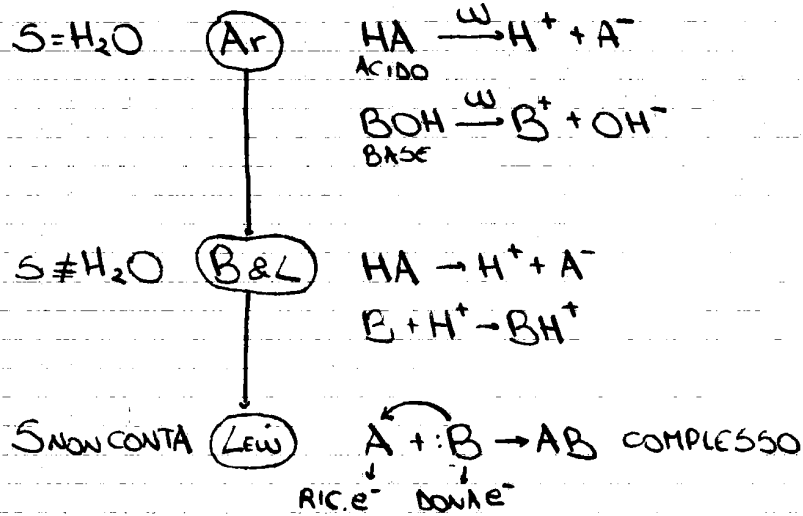 S=H₂O Ar HA →ω H⁺ + A⁻
ACIDO
BOH →ω B⁺ + OH⁻
BASE
S≠H₂O B&L HA → H⁺ + A⁻
B + H⁺ → BH⁺
S NON CONTA Lewis A + :B → AB COMPLESSO
RIC. e⁻ DONA e⁻